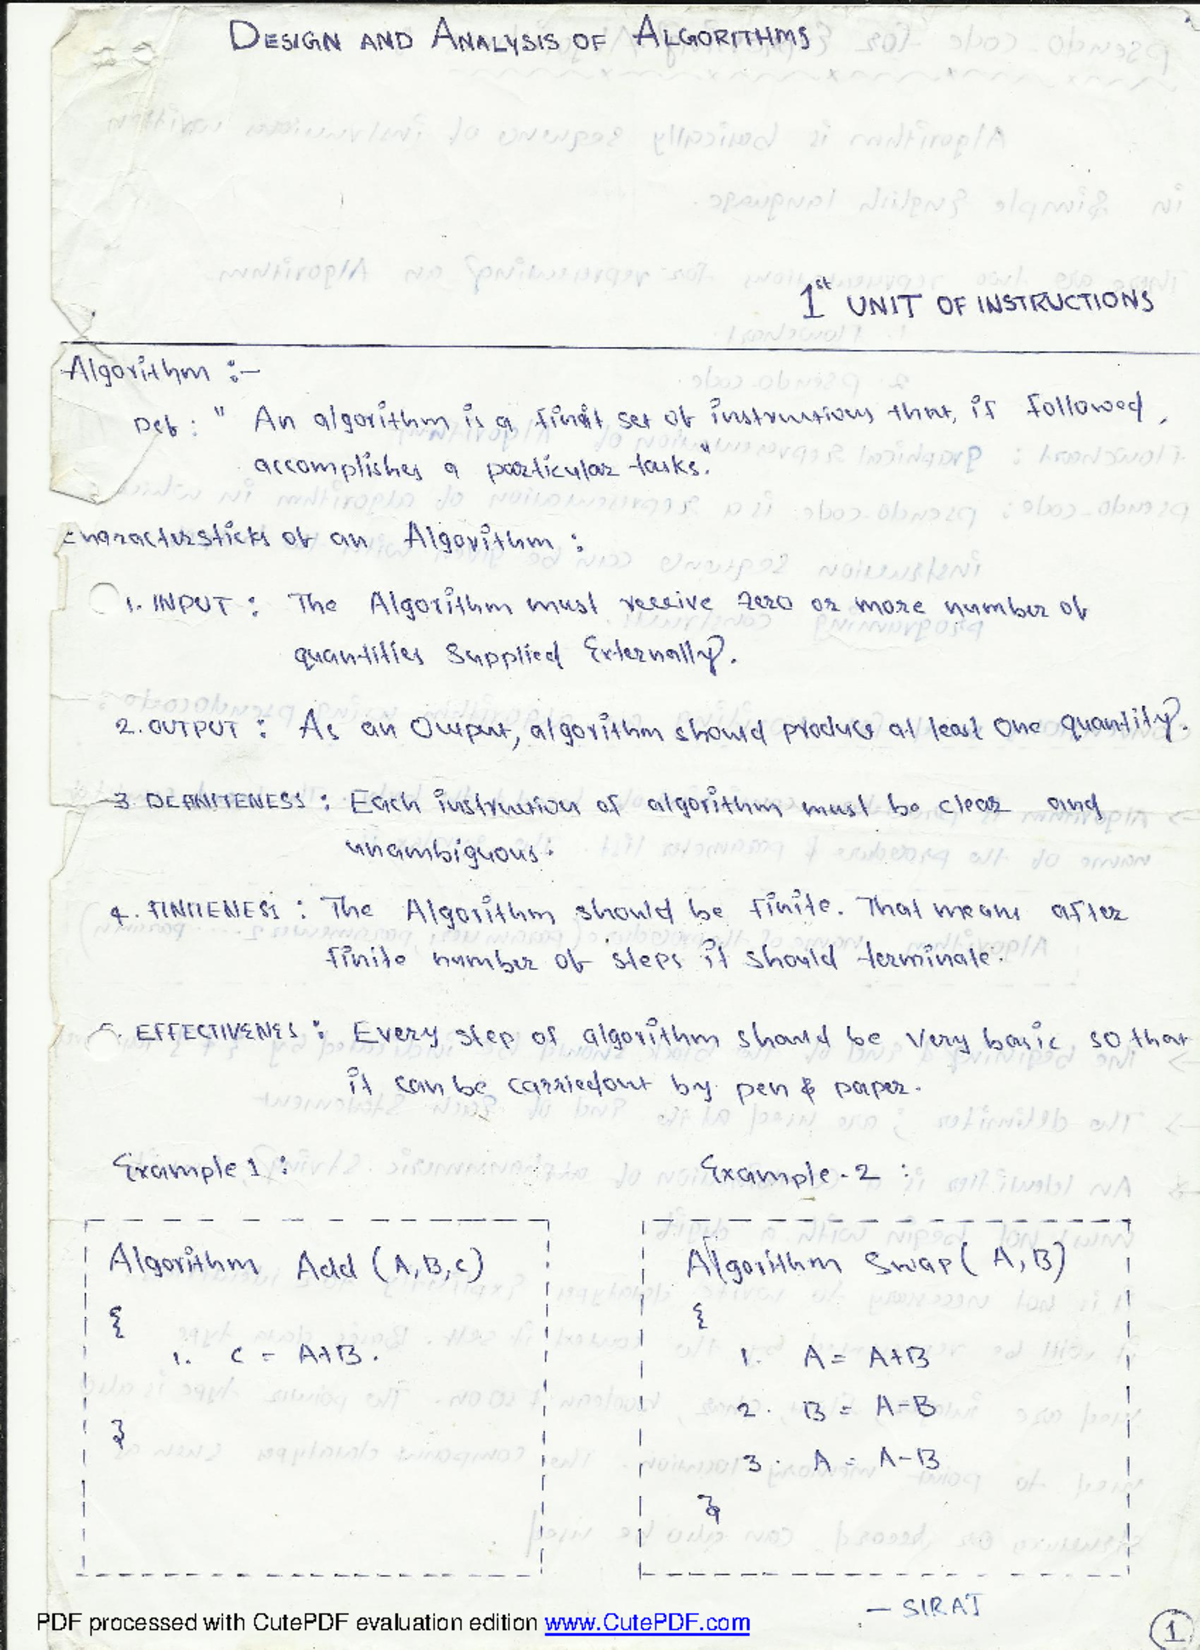 DESIGN AND ANALYSIS OF ALGORITHMS
1st UNIT OF INSTRUCTIONS
Algorithm :-
Def : " An algorithm is a finit set of instructions that, if followed,
accomplishes a particular tasks."
charactersticks of an Algorithm :
1. INPUT : The Algorithm must receive zero or more number of
quantities supplied Externally.
2. OUTPUT : As an Output, algorithm should produce at least one quantity.
3 DEFINITENESS : Each instruction of algorithm must be clear and
unambiguous.
4. FINITENESS : The Algorithm should be finite. That means after
finite number of steps it should terminate.
5. EFFECTIVENES : Every step of algorithm should be very basic so that
it can be carriedout by pen & paper.
Example 1 : Example-2 :
Algorithm Add (A,B,C)
{
1. C = A+B.
}
Algorithm Swap( A,B)
{
1. A = A+B
2. B = A-B
3. A = A-B
}
- SIRAJ
PDF processed with CutePDF evaluation edition www.CutePDF.com
1